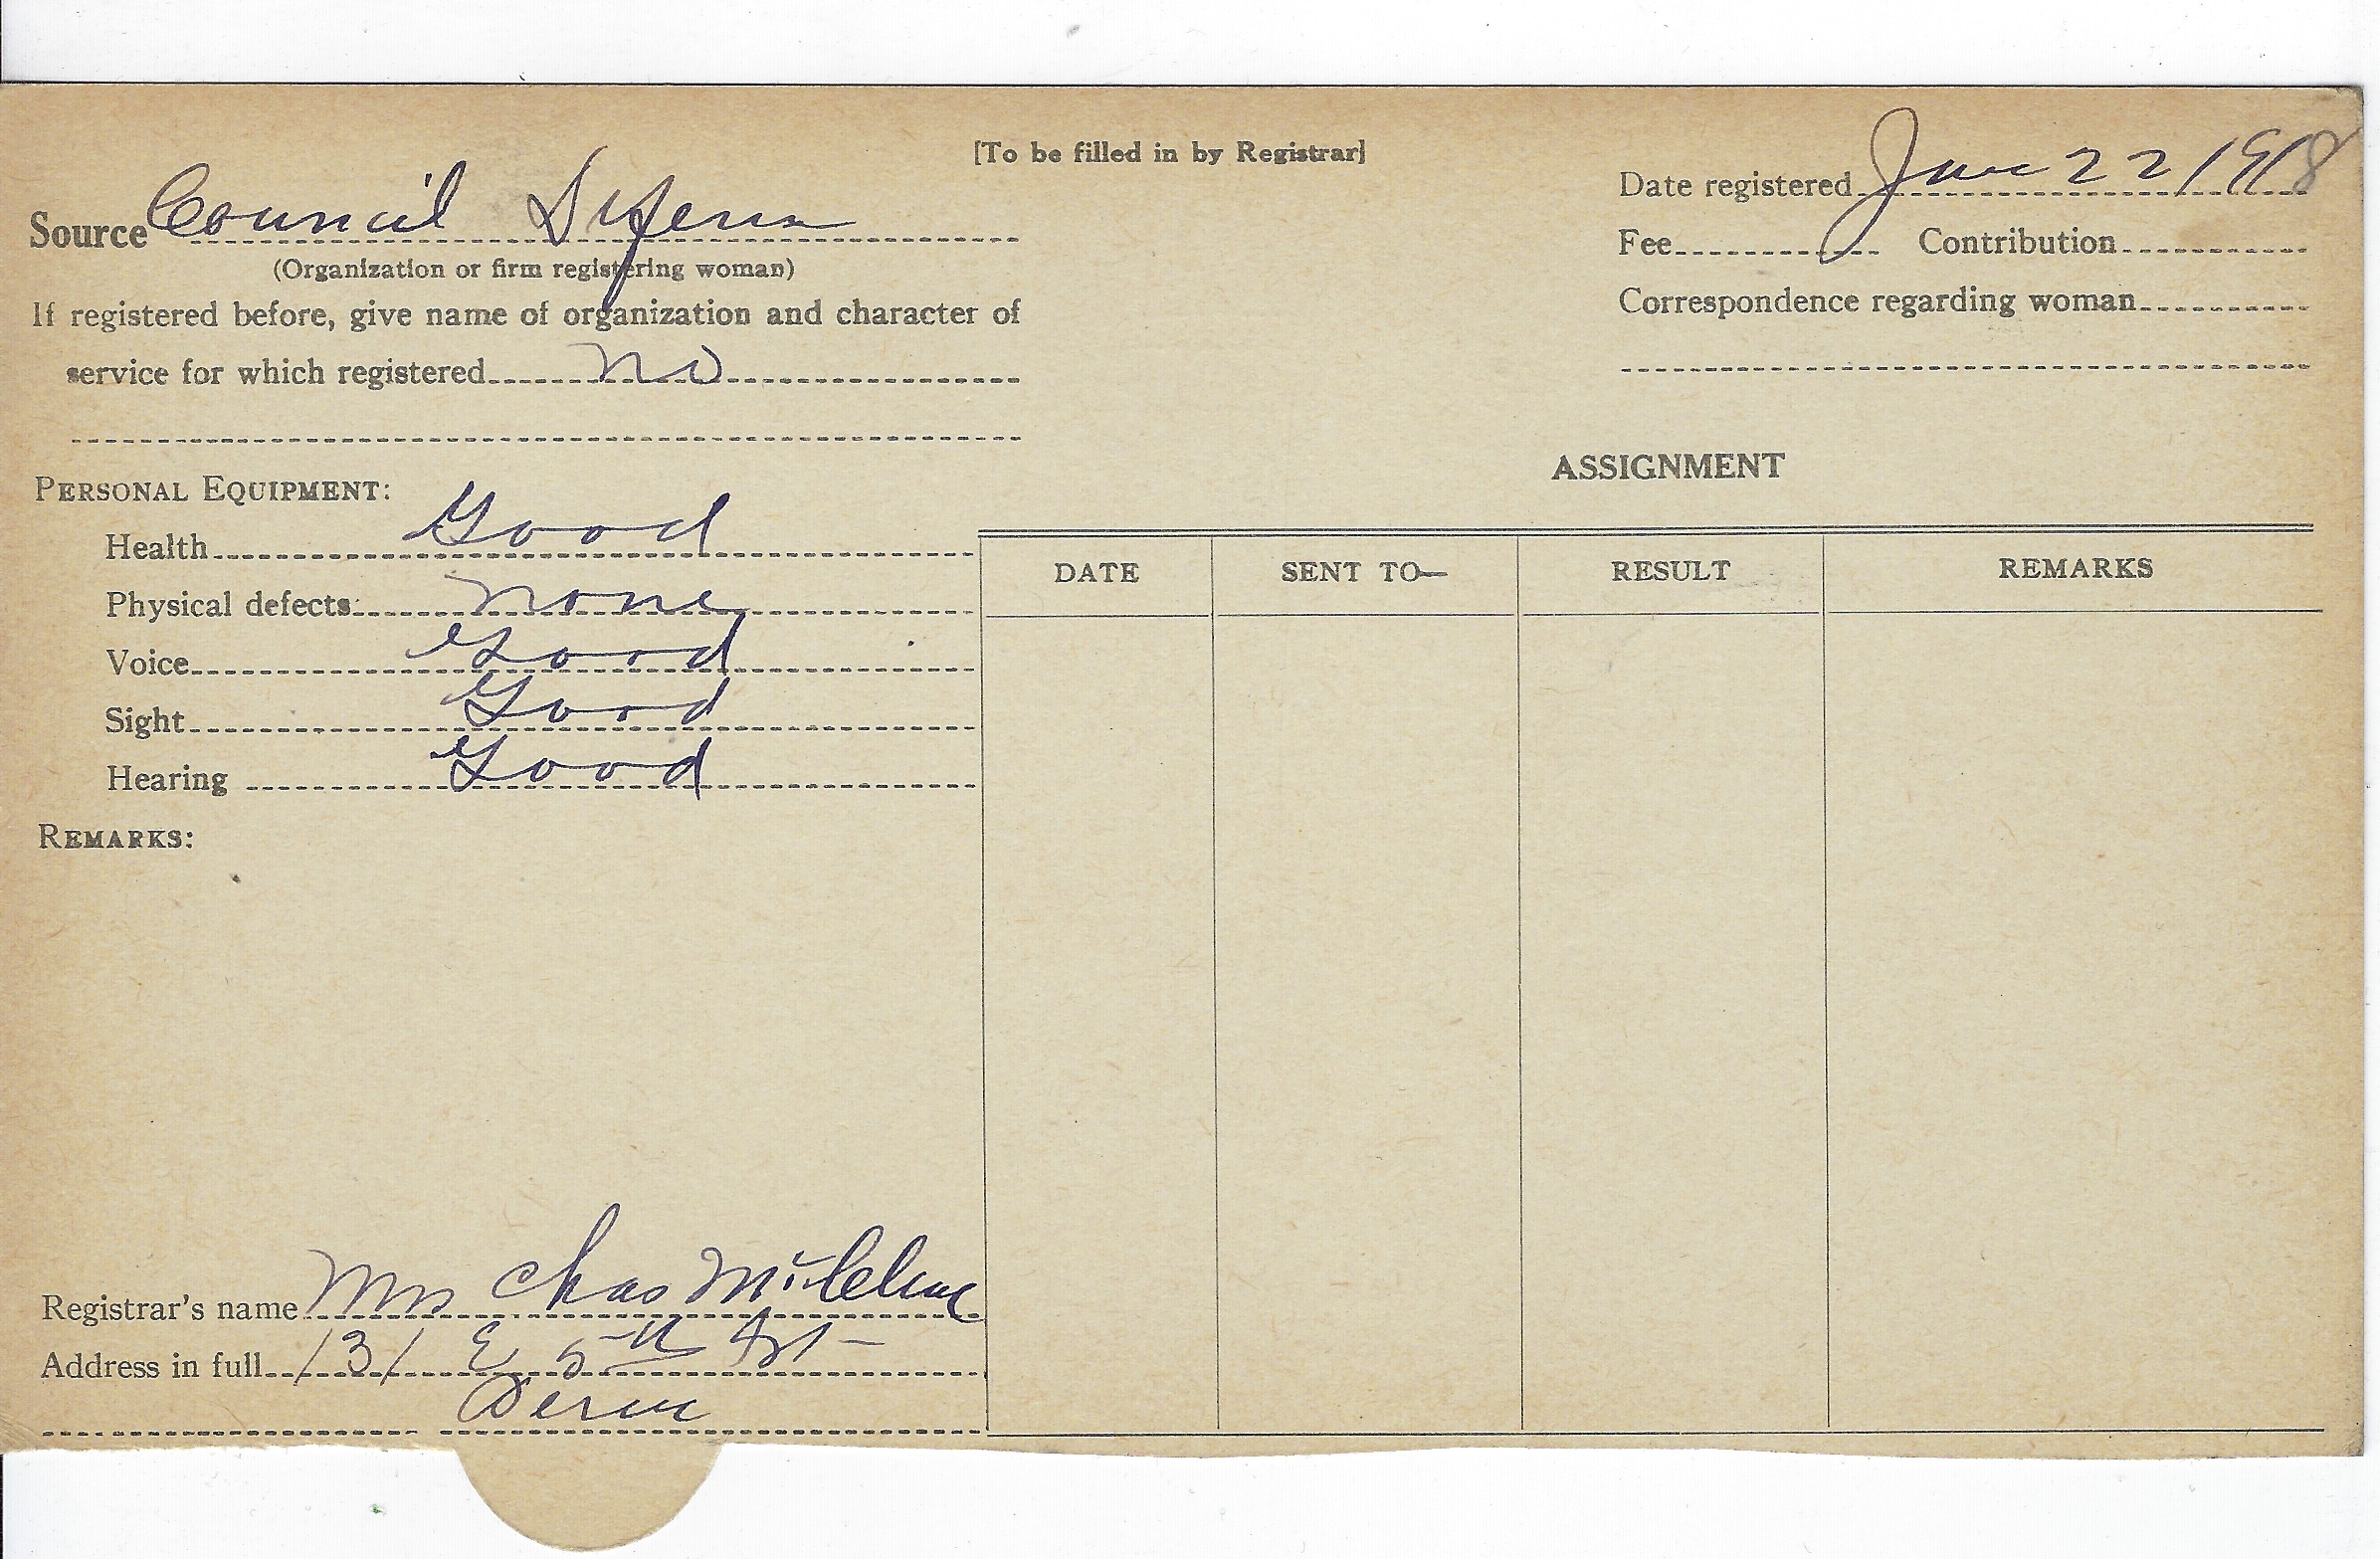 [To be filled in by Registrar]
Date registered Jan 22 1918
Source Council Defense
Fee Contribution
(Organization or firm registering woman)
Correspondence regarding woman
If registered before, give name of organization and character of
service for which registered no
ASSIGNMENT
PERSONAL EQUIPMENT:
Health Good
Physical defects none
Voice Good
Sight Good
Hearing Good
DATE SENT TO— RESULT REMARKS
REMARKS:
Registrar's name Mrs Chas
Address in full 131 E 5th St